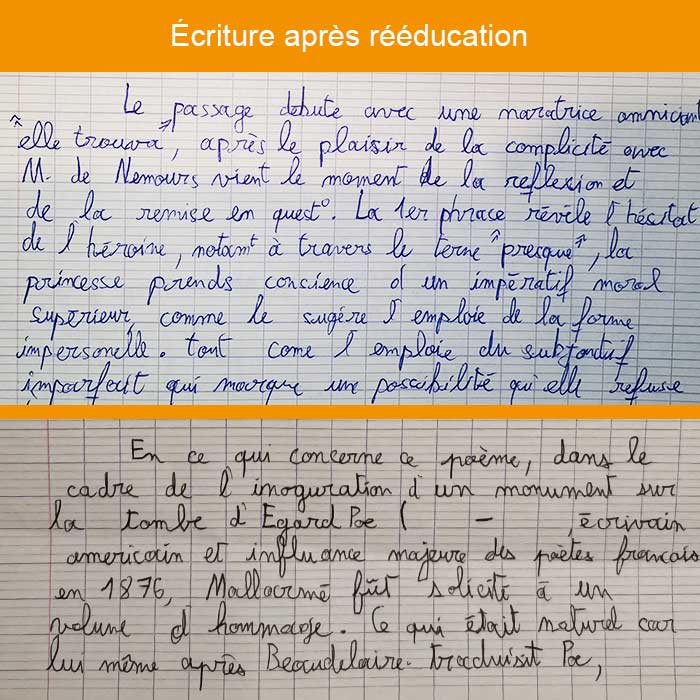 Écriture après rééducation
Le passage debute avec une naratrice omnicient
"elle trouva", après le plaisir de la complicité avec
M. de Nemours vient le moment de la reflexion et
de la remise en quest°. La 1er phrase révèle l'hésitat
de l'héroine, notamt à travers le terme "presque", la
princesse prends conscience d'un impératif moral
supérieur, comme le sugére l'emploie de la forme
impersonelle. tout come l'emploie du subjonctif
imparfait qui marque une possibilité qu'elle refuse
En ce qui concerne ce poème, dans le
cadre de l'inoguration d'un monument sur
la tombe d'Egard Poe ( - , écrivain
americain et influance majeure des poètes francais
en 1876, Mallarmé fût solicité à un
volume d'hommage. Ce qui était naturel car
lui même après Beaudelaire. traduisit Poe,